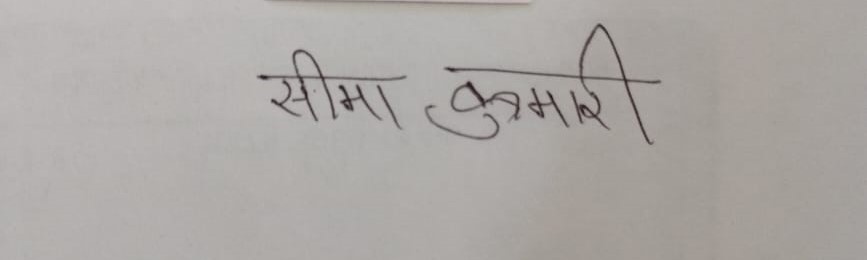 सीमा कुमारी